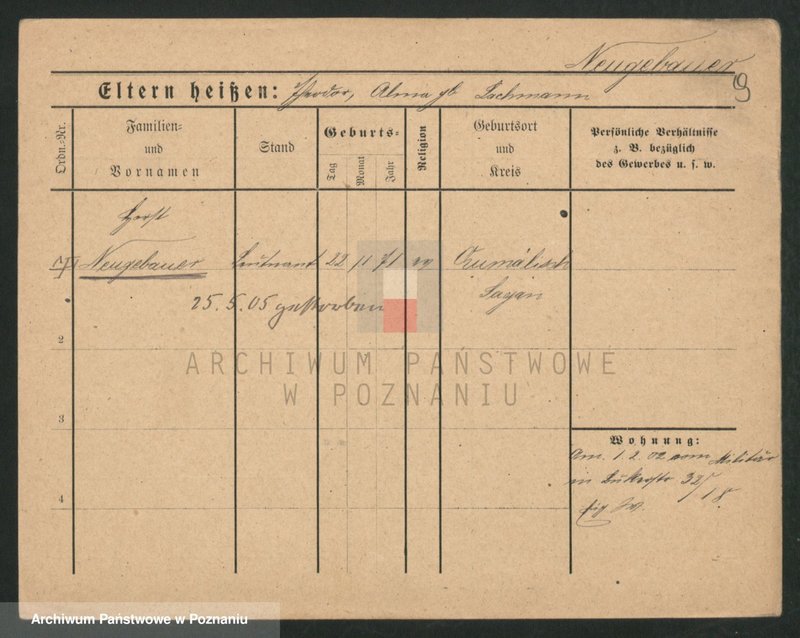 Neugebauer
9
Eltern heißen: Theodor, Alma gb Lachmann
Ordn.-Nr.
Familien-
und
Vornamen
Stand
Geburts-
Tag
Monat
Jahr
Religion
Geburtsort
und
Kreis
Persönliche Verhältnisse
z. B. bezüglich
des Gewerbes u. s. w.
Horst
1 Neugebauer Leutnant 22 11 71 ev
Sagan
25. 5. 05 gestorben
2
3
4
Wohnung:
Am 1. 2. 02 vom Militär
in 32
/18
ARCHIWUM PAŃSTWOWE
W POZNANIU
Archiwum Państwowe w Poznaniu